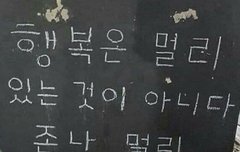 행복은 멀리
있는 것이 아니다
존나 멀리